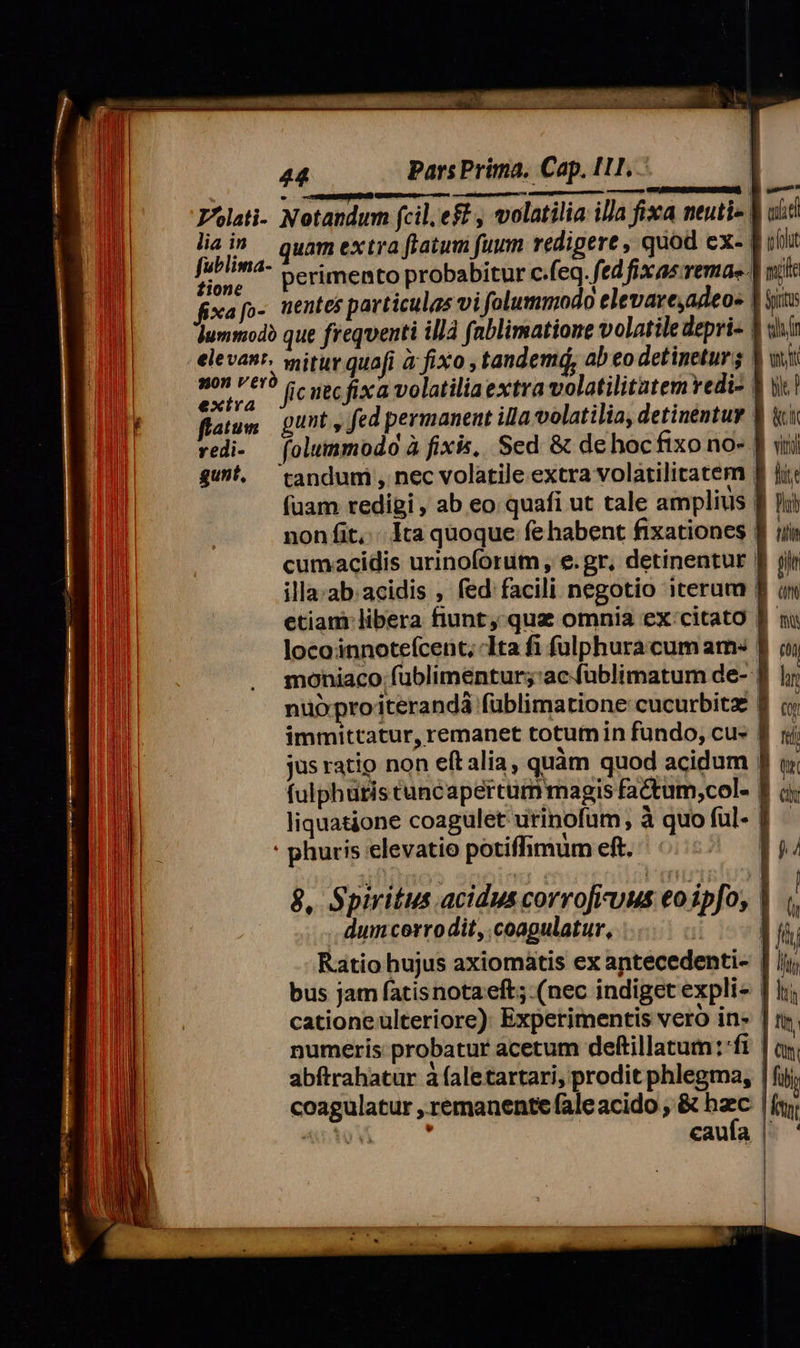 44 Pars Prima. Cap. III.
Volati- Notandum ſcil, eſt, volatilia illa fixa neuti-
lia in quam extra ſtatum ſuum redigere, quod ex-
ſublima- perimento probabitur c. ſeq. ſed fixas rema-
tione
fixa ſo- nentes particulas vi ſolummodo elevare, adeo-
lummodò que freqventi illâ ſublimatione volatile depri-
elevant, mitur quaſi à fixo, tandemq́; ab eo detinetur;
non verò ſic nec fixa volatilia extra volatilitatem redi-
extra
ſtatum gunt, ſed permanent illa volatilia, detinentur
redi- ſolummodo à fixis. Sed & de hoc fixo no-
gunt. tandum, nec volatile extra volatilitatem
ſuam redigi, ab eo quaſi ut tale amplius
non ſit. Ita quoque ſe habent fixationes
cum acidis urinoſorum, e. gr. detinentur
illa ab acidis, ſed facili negotio iterum
etiam libera fiunt, quæ omnia ex citato
loco innoteſcent. Ita ſi ſulphura cum am-
moniaco ſublimentur, ac ſublimatum de-
nuò pro iterandâ ſublimatione cucurbitæ
immittatur, remanet totum in fundo, cu-
jus ratio non eſt alia, quàm quod acidum
ſulphuris tunc apertum magis factum, col-
liquatione coagulet urinoſum, à quo ſul-
phuris elevatio potiſſimum eſt.
8. Spiritus acidus corroſivus eo ipſo,
dum corrodit, coagulatur.
Ratio hujus axiomatis ex antecedenti-
bus jam ſatis nota eſt; (nec indiget expli-
catione ulteriore) Experimentis verò in-
numeris probatur acetum deſtillatum: ſi
abſtrahatur à ſale tartari, prodit phlegma,
coagulatur, remanente ſale acido, & hæc
cauſa